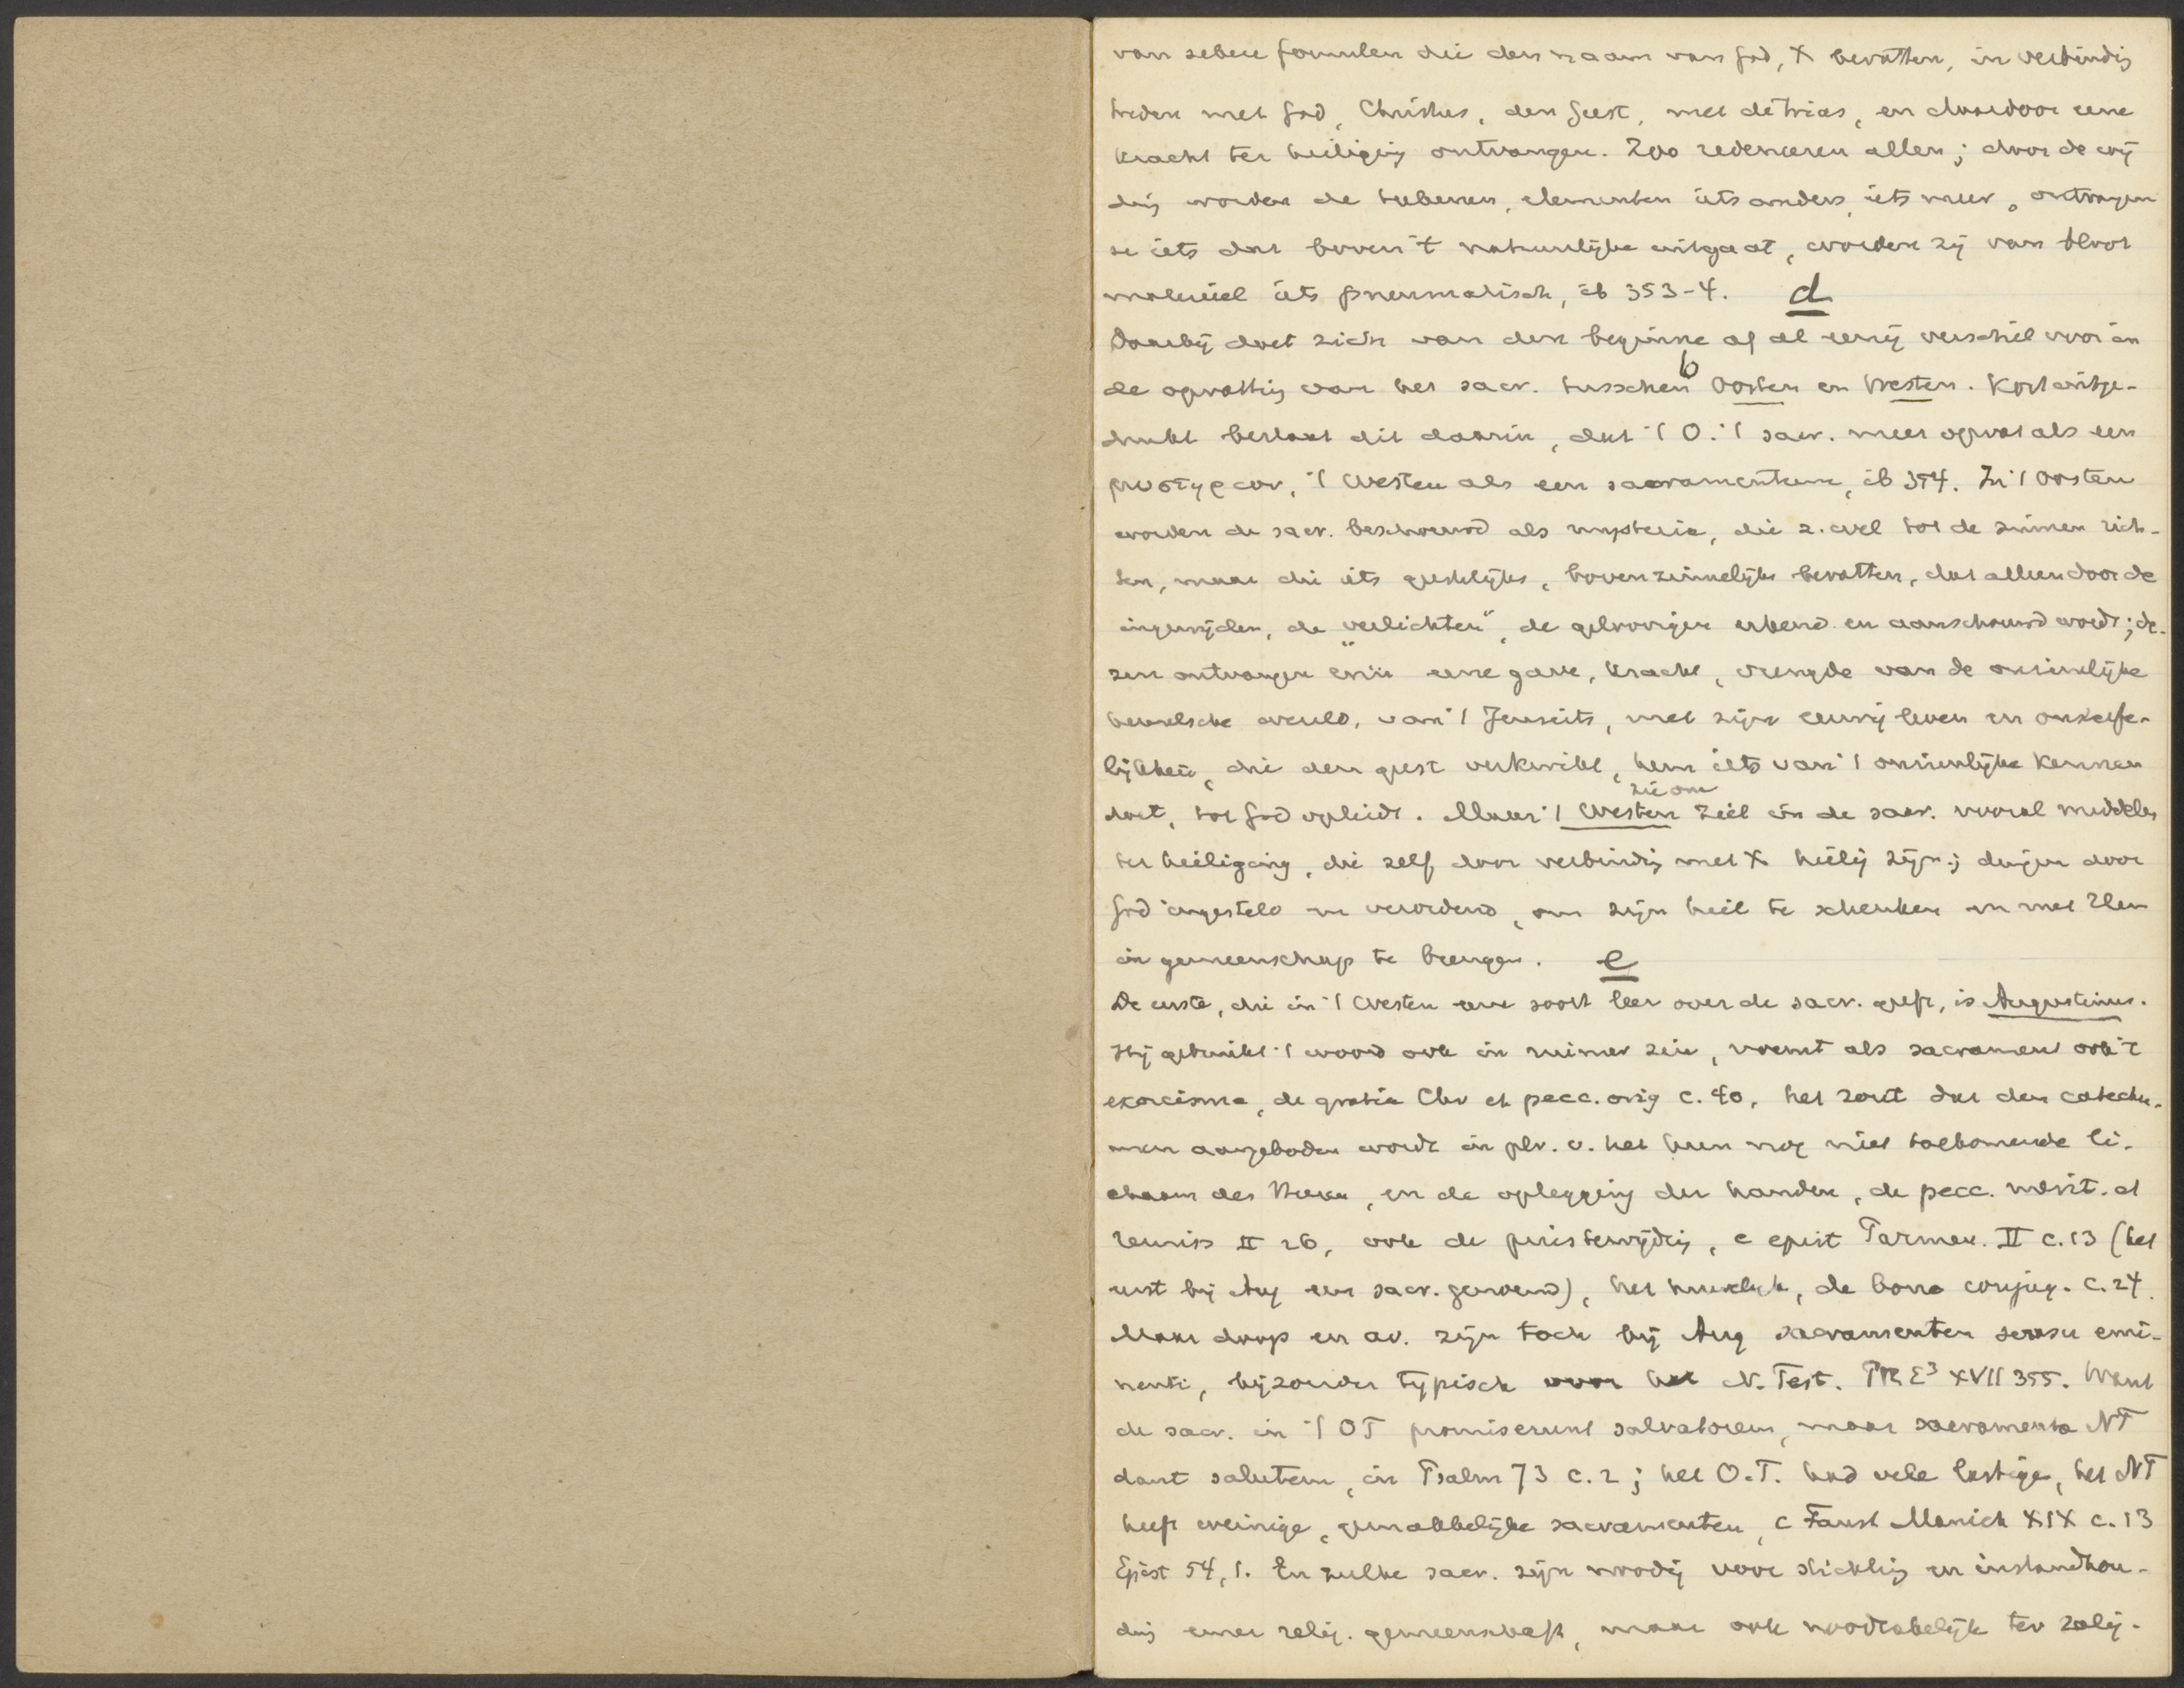 van zekere formulen die den naam van God, X bevatten, in verbindig
treden met God, Christus, den Geest, met de trias, en daardoor eene
kracht ter heiliging ontvangen. Zoo redeneeren allen; door de wij
dig worden de teekenen, elementen iets anders, iets meer, ontvangen
ze iets dat boven 't natuurlijke uitgaat, worden zij van bloot
materieel iets pneumatisch, ib 353-4. d
Daarbij doet zich van den beginne af al eenig verschil voor in
de opvattig van het sacr. tusschen b Oosten en Westen. Kort uitge-
drukt bestaat dit daarin, dat 't O. 't sacr. meer opvat als een
μυστηριον, 't Westen als een sacramentum, ib 354. In 't Oosten
worden de sacr. beschouwd als mysteria, die z. wel tot de zinnen rich-
ten, maar die iets geestelijks, bovenzinnelijks bevatten, dat alleen door de
ingewijden, de „verlichten", de geloovigen erkend en aanschouwd wordt; de-
zen ontvangen erin eene gave, kracht, vreugde van de onzienlijke
hemelsche wereld, van 't Jenseits, met zijn eeuwig leven en onsterfe-
lijkheid, die den geest verkwikt, hem iets van 't onzienlijke kennen
doet, tot God opleidt. Maar 't Westen ziet in de sacr. vooral middelen
zie om
ter heiliging, die zelf door verbindig met X heilig zijn; dingen door
God ingesteld en verordend, om zijn heil te schenken en met Hem
in gemeenschap te brengen. e
De eerste, die in 't Westen eene soort leer over de sacr. geeft, is Augustinus.
Hij gebruikt 't woord ook in ruimer zin, noemt als sacrament ook 't
exorcisme, de gratia Chr et pecc. orig c. 40, het zout dat den catechu-
men aangeboden wordt in plv. v. het hun nog niet toekomende li-
chaam des Heeren, en de oplegging der handen, de pecc. merit. et
remiss II 26, ook de priesterwijdig, c epist Parmen. II c.13 (het
eerst bij Aug een sacr. genoemd), het huwelijk, de bono conjug. c.24.
Maar doop en av. zijn toch bij Aug sacramenten sensu emi-
nenti, bijzonder typisch voor het N. Test. PRE³ XVII 355. Want
de sacr. in 't OT promiserunt salvatorem, maar sacramenta NT
dant salutem, in Psalm 73 c.2; het O.T. had vele lastige, het NT
heeft weinige, gemakkelijke sacramenten, c Faust Manich XIX c.13
Epist 54,1. En zulke sacr. zijn noodig voor stichtig en instandhou-
dig eener relig. gemeenschap, maar ook noodzakelijk ter zalig-